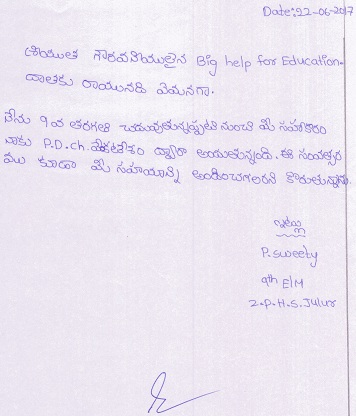 Date:22-06-2017
శ్రీయుత గౌరవనీయులైన Big help for Education
దాతకు రాయునది ఏమనగా.
నేను 9వ తరగతి చదువుతున్నప్పటి నుంచి మీ సహకారం
నాకు P.D.ch. వెంకటేశం ద్వారా అందుతున్నది. ఈ సంవత్సర
ము కూడా మీ సహాయాన్ని అందించగలరని కోరుతున్నాను.
ఇట్లు
P.sweety
9th E/M
Z.P.H.S.Julur